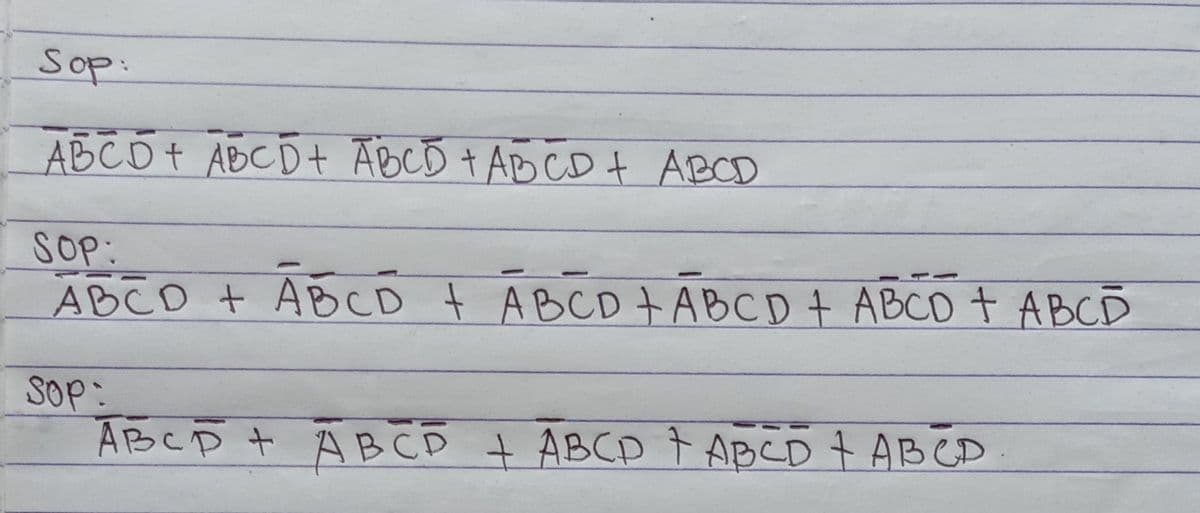 Sop:
A̅B̅C̅D̅ + A̅B̅CD̅ + A̅BCD̅ + AB̅C̅D + ABCD
SOP:
A̅B̅C̅D + A̅B̅CD̅ + A̅BC̅D + AB̅CD + AB̅C̅D̅ + ABCD̅
SOP:
A̅B̅CD̅ + A̅BC̅D̅ + A̅BCD + AB̅C̅D̅ + ABC̅D.